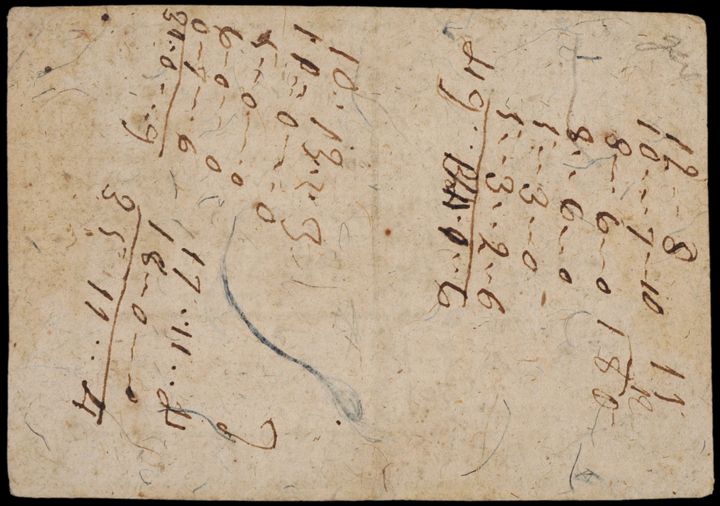 12 -- 8 11
10 -- 7 - 10 12
8 -- 6 -- 0 180
8 - 6 -- 0
5 -- 3 -- 0
5 - 3 - 2 - 6
49 .. 1 .. 6
10 .. 13 .. 3
11 -- 0 -- 0
5 -- 0 -- 0
6 -- 0 -- 0
0 -- 7 -- 6
33 .. 0 .. 9
17 .. 11 .. 4
18 -- 0 -- 0
35 .. 11 .. 4